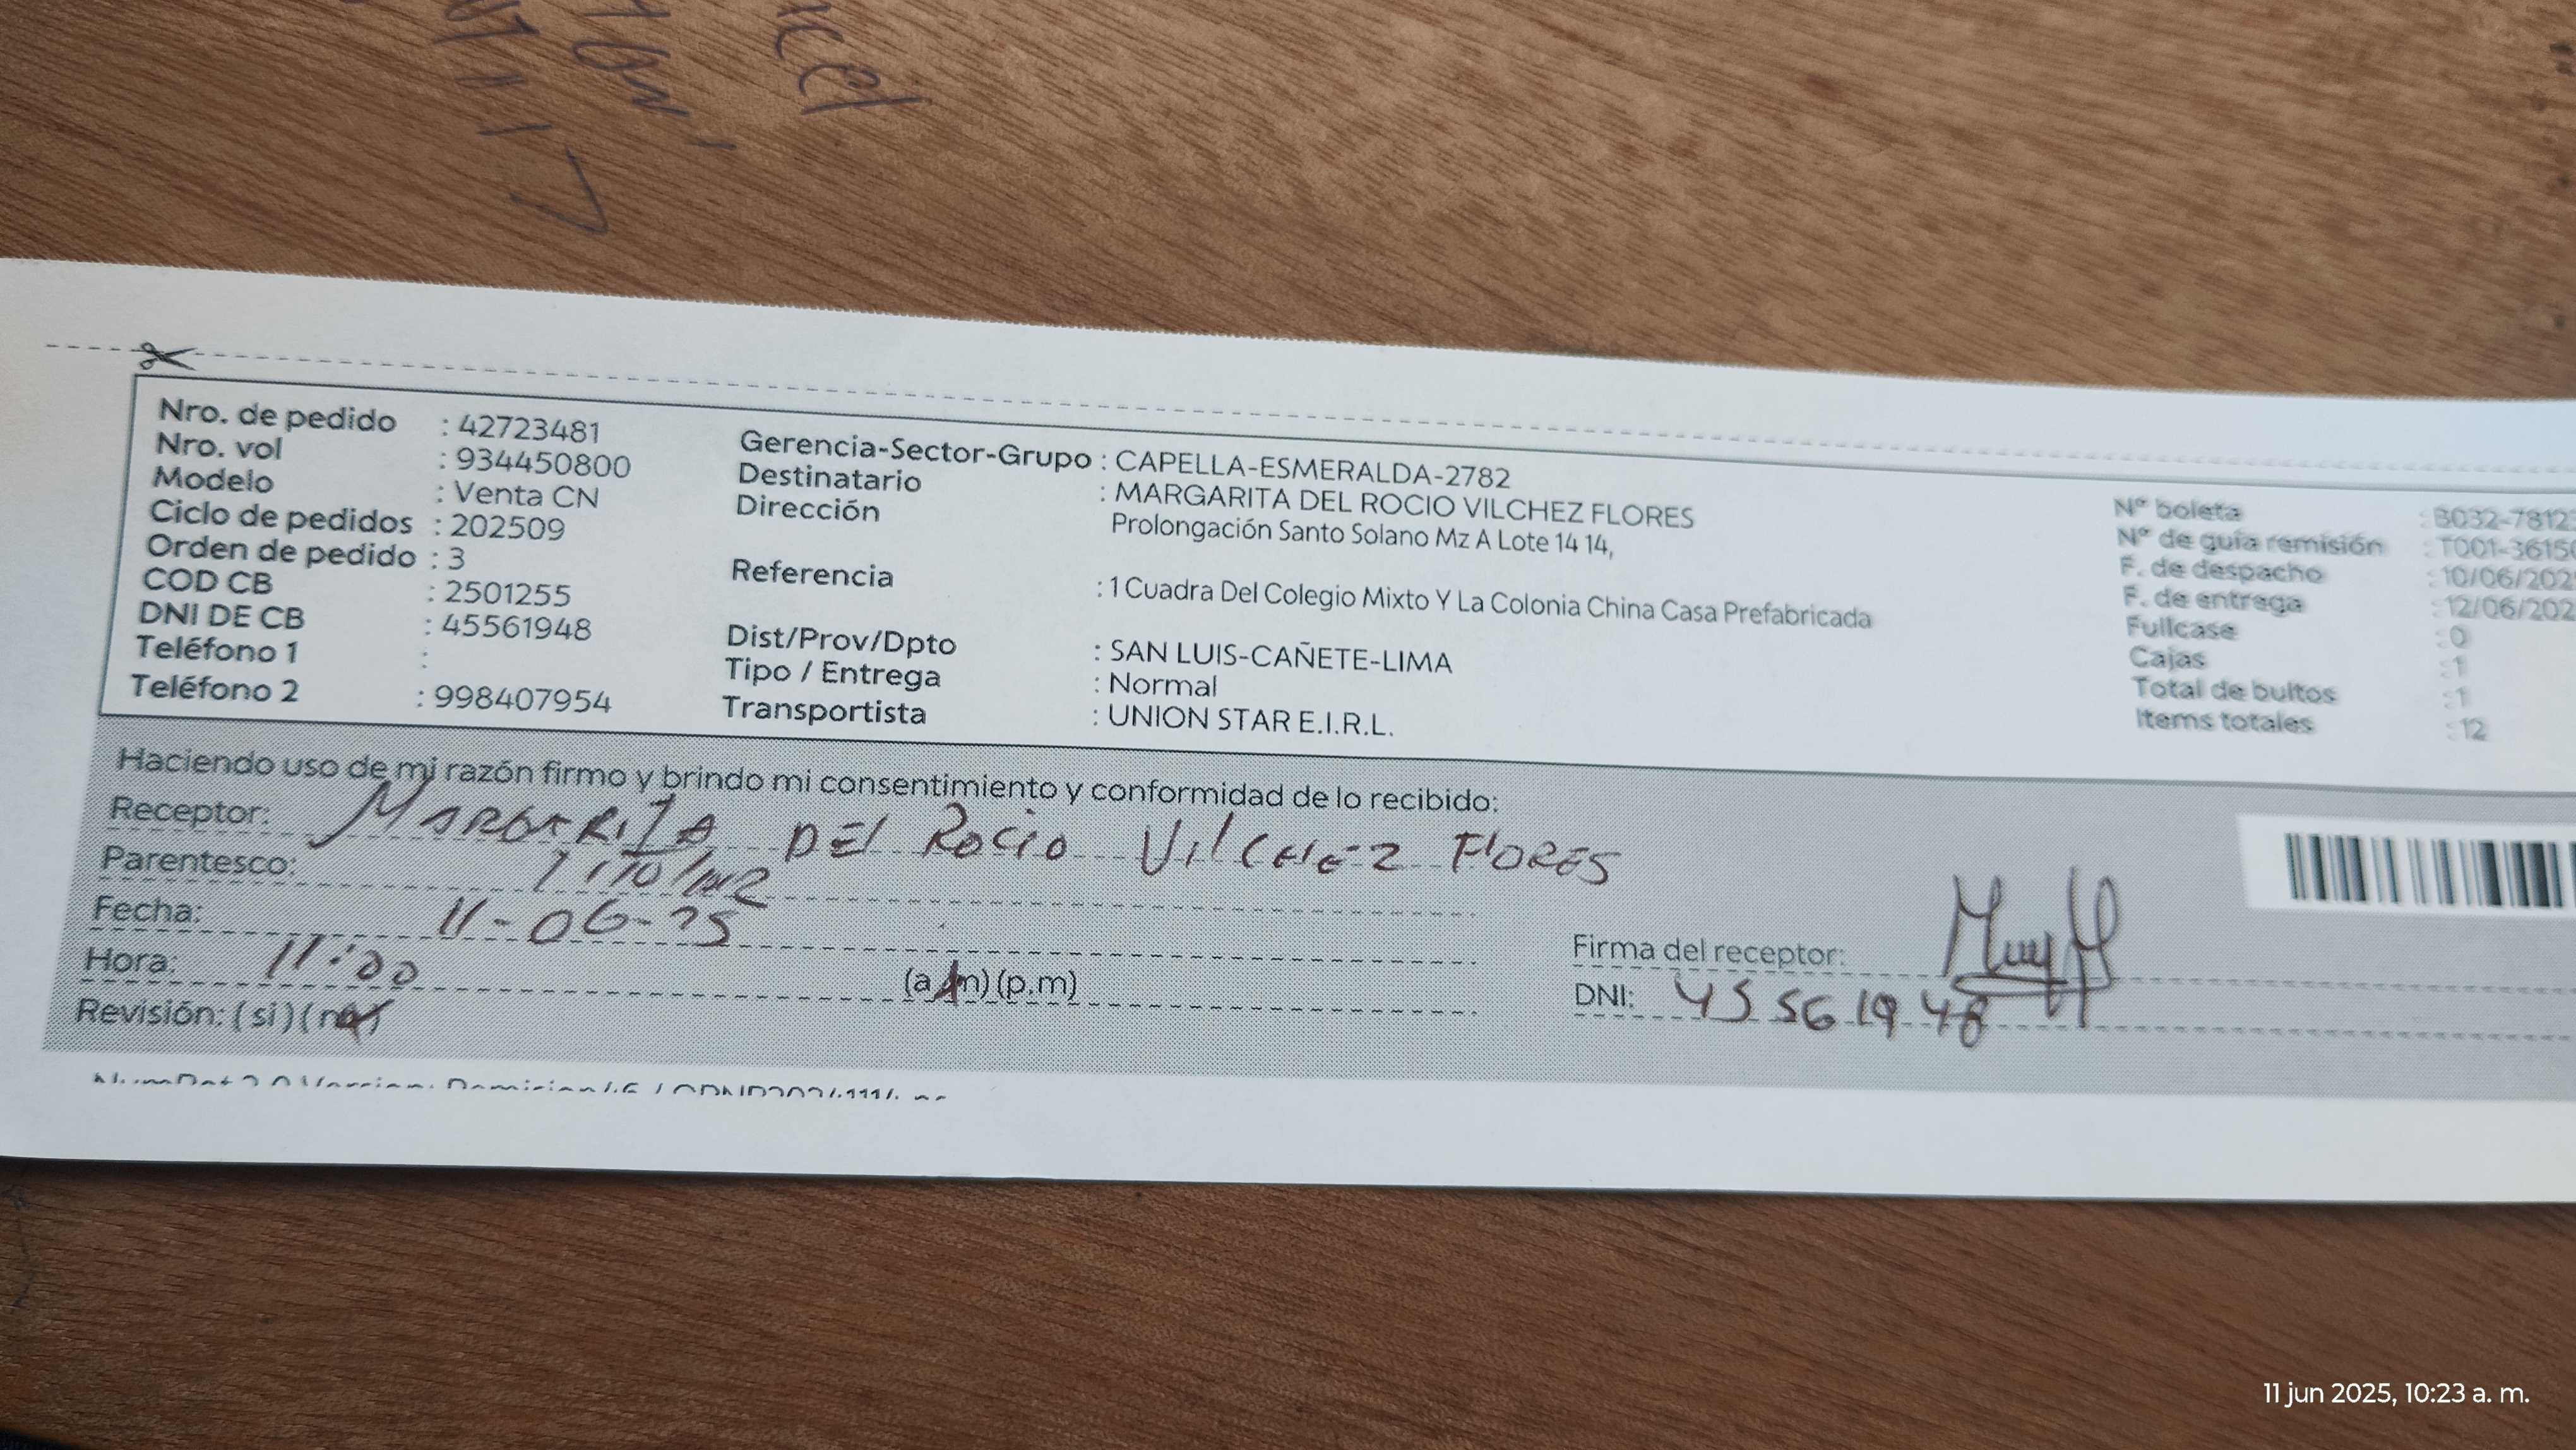 Nro. de pedido : 42723481
Nro. vol : 934450800
Modelo : Venta CN
Ciclo de pedidos : 202509
Orden de pedido : 3
COD CB : 2501255
DNI DE CB : 45561948
Teléfono 1 :
Teléfono 2 : 998407954
Gerencia-Sector-Grupo : CAPELLA-ESMERALDA-2782
Destinatario : MARGARITA DEL ROCIO VILCHEZ FLORES
Dirección Prolongación Santo Solano Mz A Lote 14 14,
Referencia : 1 Cuadra Del Colegio Mixto Y La Colonia China Casa Prefabricada
Dist/Prov/Dpto : SAN LUIS-CAÑETE-LIMA
Tipo / Entrega : Normal
Transportista : UNION STAR E.I.R.L.
N° boleta : B032-7812
N° de guía remisión : T001-3615
F. de despacho : 10/06/202
F. de entrega : 12/06/202
Fullcase : 0
Cajas : 1
Total de bultos : 1
Items totales : 12
Haciendo uso de mi razón firmo y brindo mi consentimiento y conformidad de lo recibido:
Receptor: MARGARITA DEL ROCIO VILCHEZ FLORES
Parentesco:
Fecha: 11-06-25
Hora: 11:00 (a.m) (p.m)
Revisión: ( si ) ( no )
Firma del receptor:
DNI: 45561948
11 jun 2025, 10:23 a. m.